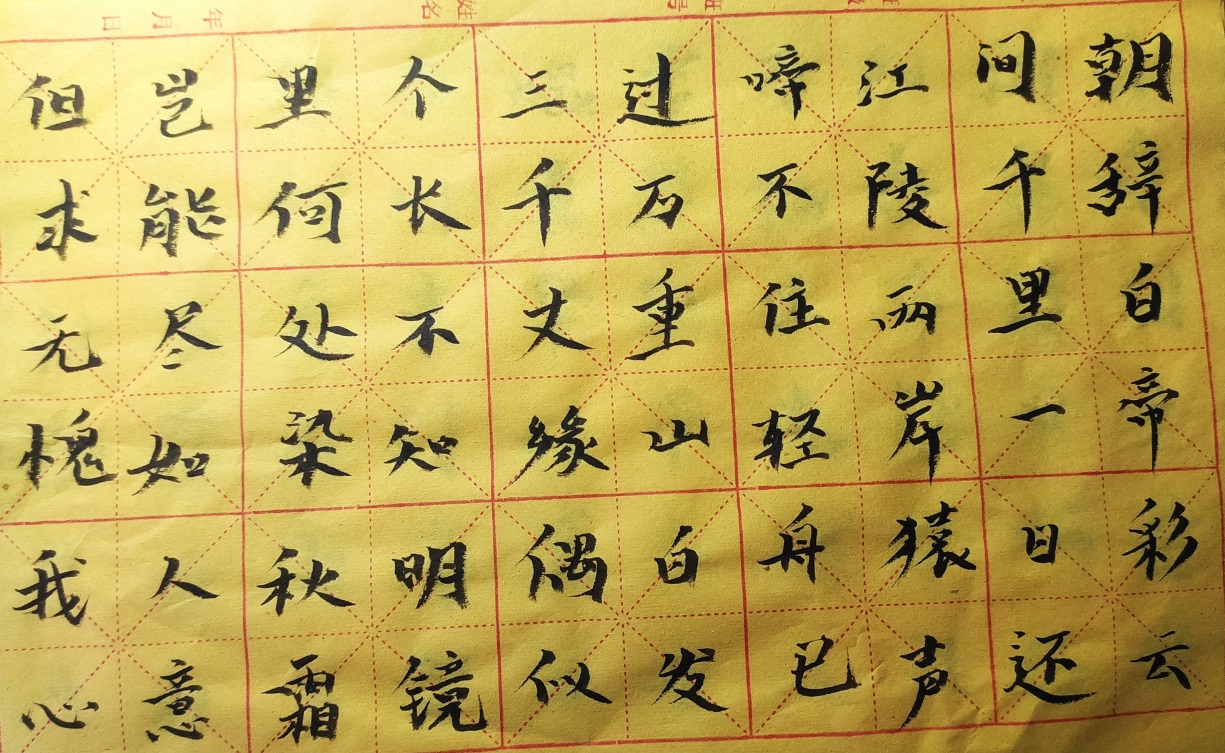 朝辞白帝彩云
间千里一日还
江陵两岸猿声
啼不住轻舟已
过万重山白发
三千丈缘偶似
个长不知明镜
里何处染秋霜
岂能尽如人意
但求无愧我心
姓名
年 月 日